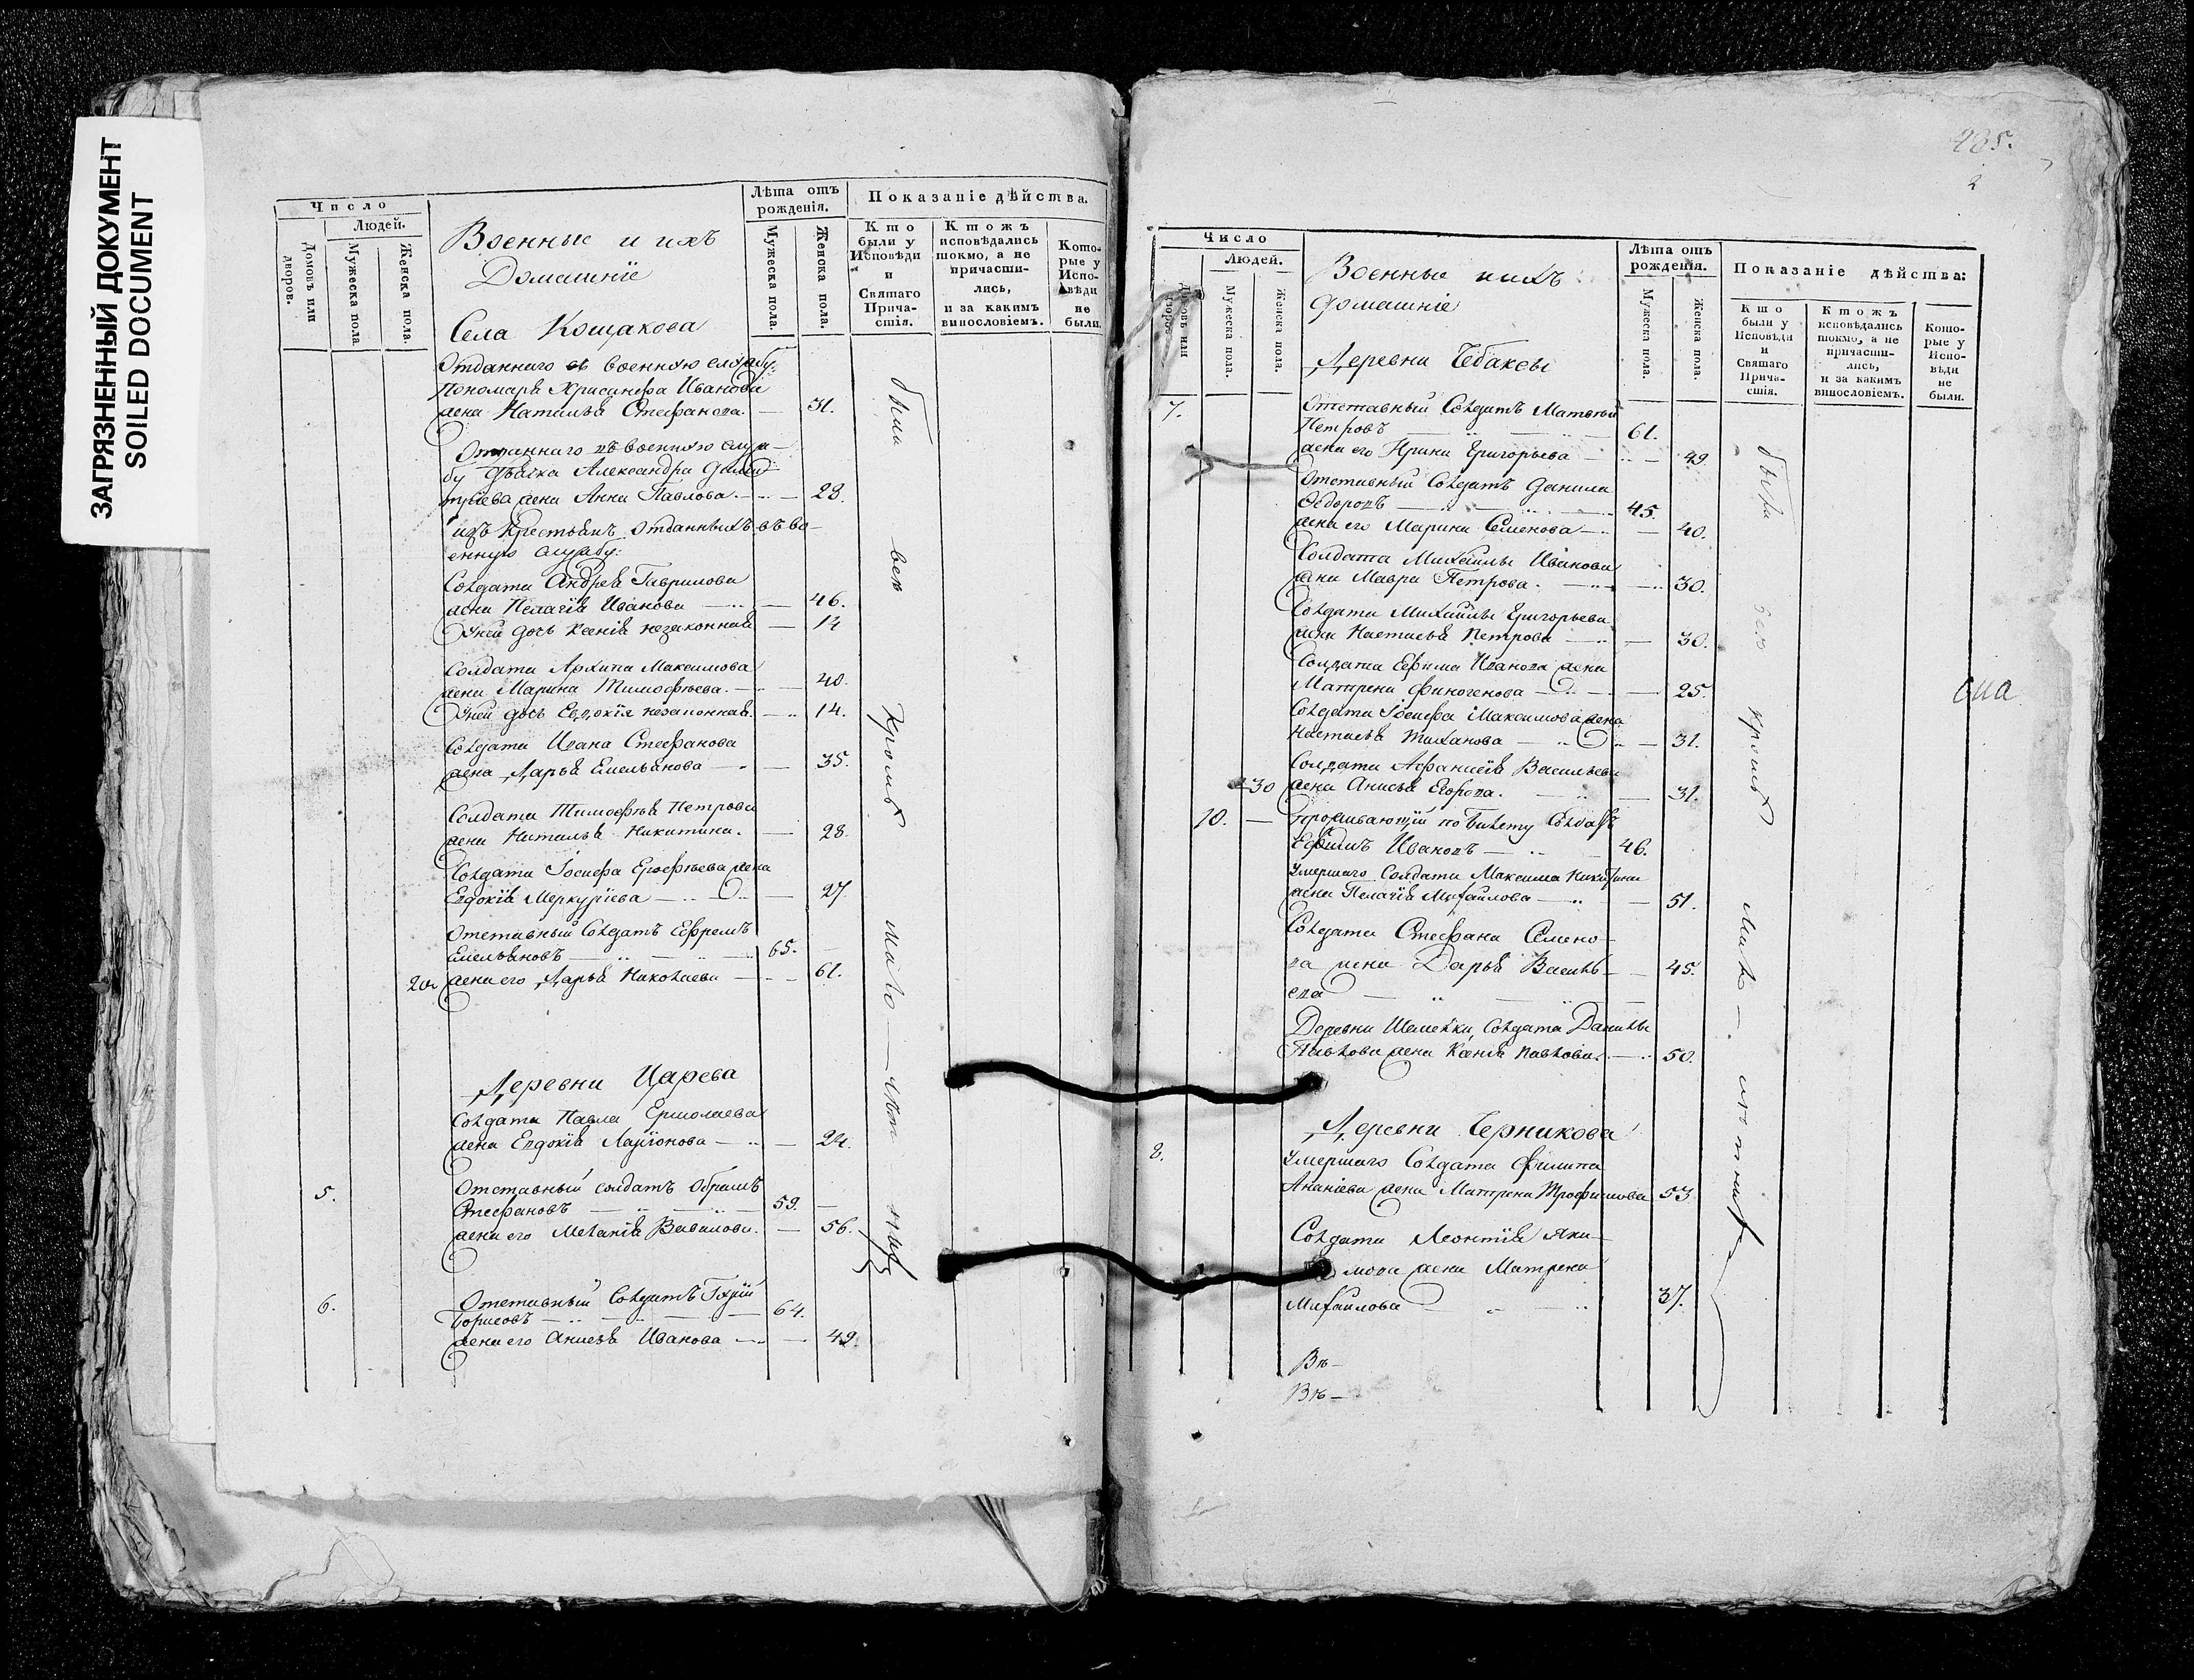 ЗАГРЯЗНЕННЫЙ ДОКУМЕНТ
SOILED DOCUMENT
Число
Людей.
Домовъ или дворовъ.
Мужеска пола.
Женска пола.
Военные и ихъ
Домашнїе
Села Кощакова
Лѣта отъ рожденія.
Мужеска пола.
Женска пола.
Показаніе дѣйства.
Кто были у Исповѣди и Святаго Причастія.
Ктожъ исповѣдались токмо, а не причастились, и за какимъ винословіемъ.
Которые у Исповѣди не были.
Отданнаго въ военною службу
Пономаря Хрисанфа Иванова
жена Наталья Стефанова. — 31.
Отданнаго въ военною служ—
бу Дьячка Александра Димит
трїева жена Анна Павлова. — 28.
изъ Крестьянъ отданныхъ въ во—
енную службу:
Солдата Андрея Гаврилова
жена Пелагїя Иванова — 46.
У ней дочь Ксенїя незаконная — 14
Солдата Архипа Максимова
жена Марина Тимофѣева. — 40.
У ней дочь Евдокїя незаконная. — 14.
Солдата Ивана Стефанова
жена Дарья Емельянова — 35.
Солдата Тимофѣя Петрова
жена Наталья Никитина. — 28.
Солдата Іосифа Ерофѣева жена
Евдокїя Меркурїева — 27.
Отставный Солдатъ Ефремъ
Емельяновъ — 65.
жена его Дарья Николаева — 61.
Деревни Царева
Солдата Павла Ермолаева
жена Евдокїя Ларїонова — 24.
5. Отставный солдатъ Обрамъ
Стефановъ — 59.
жена его Меланїя Вавилова. — 56.
6. Отставный Солдатъ
Борисовъ — 64.
жена его Анисья Иванова — 49.
были
Кромѣ
485.
2
Число
Людей.
Домовъ или дворовъ
Мужеска пола.
Женска пола.
Военные и ихъ
домашнїе
Деревни Чебаксы
Лѣта отъ рожденія.
Мужеска пола.
Женска пола.
Показаніе дѣйства:
Кто были у Исповѣди и Святаго Причастія.
Ктожъ исповѣдались токмо, а не причастились, и за какимъ винословіемъ.
Которые у Исповѣди не были.
7. Отставный Солдатъ Матвѣй
Петровъ — 61.
жена его Ирина Григорьева — 49.
Отставный Солдатъ Данила
Ѳедоровъ — 45.
жена его Марина Семенова — 40.
Солдата Михайлы Иванова
жена Мавра Петрова. — 30.
Солдата Михайлы Григорьева
жена Настасья Петрова — 30.
Солдата Ефима Иванова жена
Матрена Финогенова — 25.
Солдата Іосифа Максимова жена
Настасья — 31.
Солдата Афанасїя Васильева
30 жена Анисья Егорова. — 31.
10. — Проживающїй по билету Солдатъ
Ефимъ Ивановъ — 46.
Умершаго Солдата Максима Никитина
жена Пелагїя Михайлова — 51.
Солдата Стефана Семено—
ва жена Дарья Василь— 45.
ева
Деревни Солдата Данилы
Павлова жена Ксенїя Павлова. — 50.
Деревни Черникова
8. Умершаго Солдата Филипа
Ананіева жена Матрена Трофимова 53
Солдата Леонтїя Яки—
мова жена Матрена
Михайлова — 37.
Въ—
Въ—
были
кромѣ